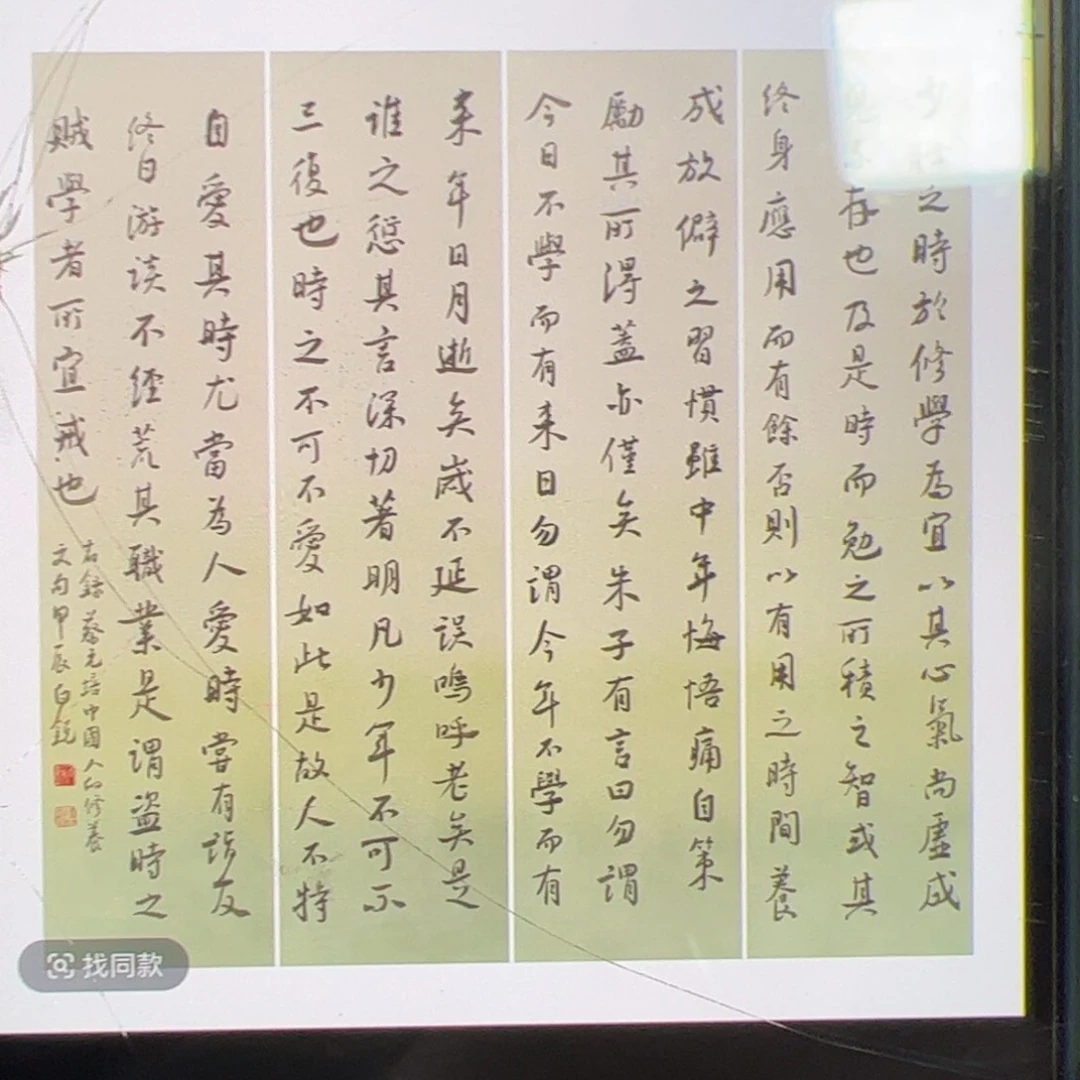 少壯之時於修學為宜以其心氣尚虛成
見不存也及是時而勉之所積之智或其
終身應用而有餘否則以有用之時間養
成放僻之習慣雖中年悔悟痛自策
勵其所得蓋亦僅矣朱子有言曰勿謂
今日不學而有来日勿謂今年不學而有
来年日月逝矣歲不延誤嗚呼老矣是
誰之愆其言深切著明凡少年不可不
三復也時之不可不愛如此是故人不特
自愛其時尤當為人愛時嘗有詣友
終日游談不經荒其職業是謂盜時之
賊學者所宜戒也
右錄蔡元培中國人的修養
文句甲辰白銳
找同款